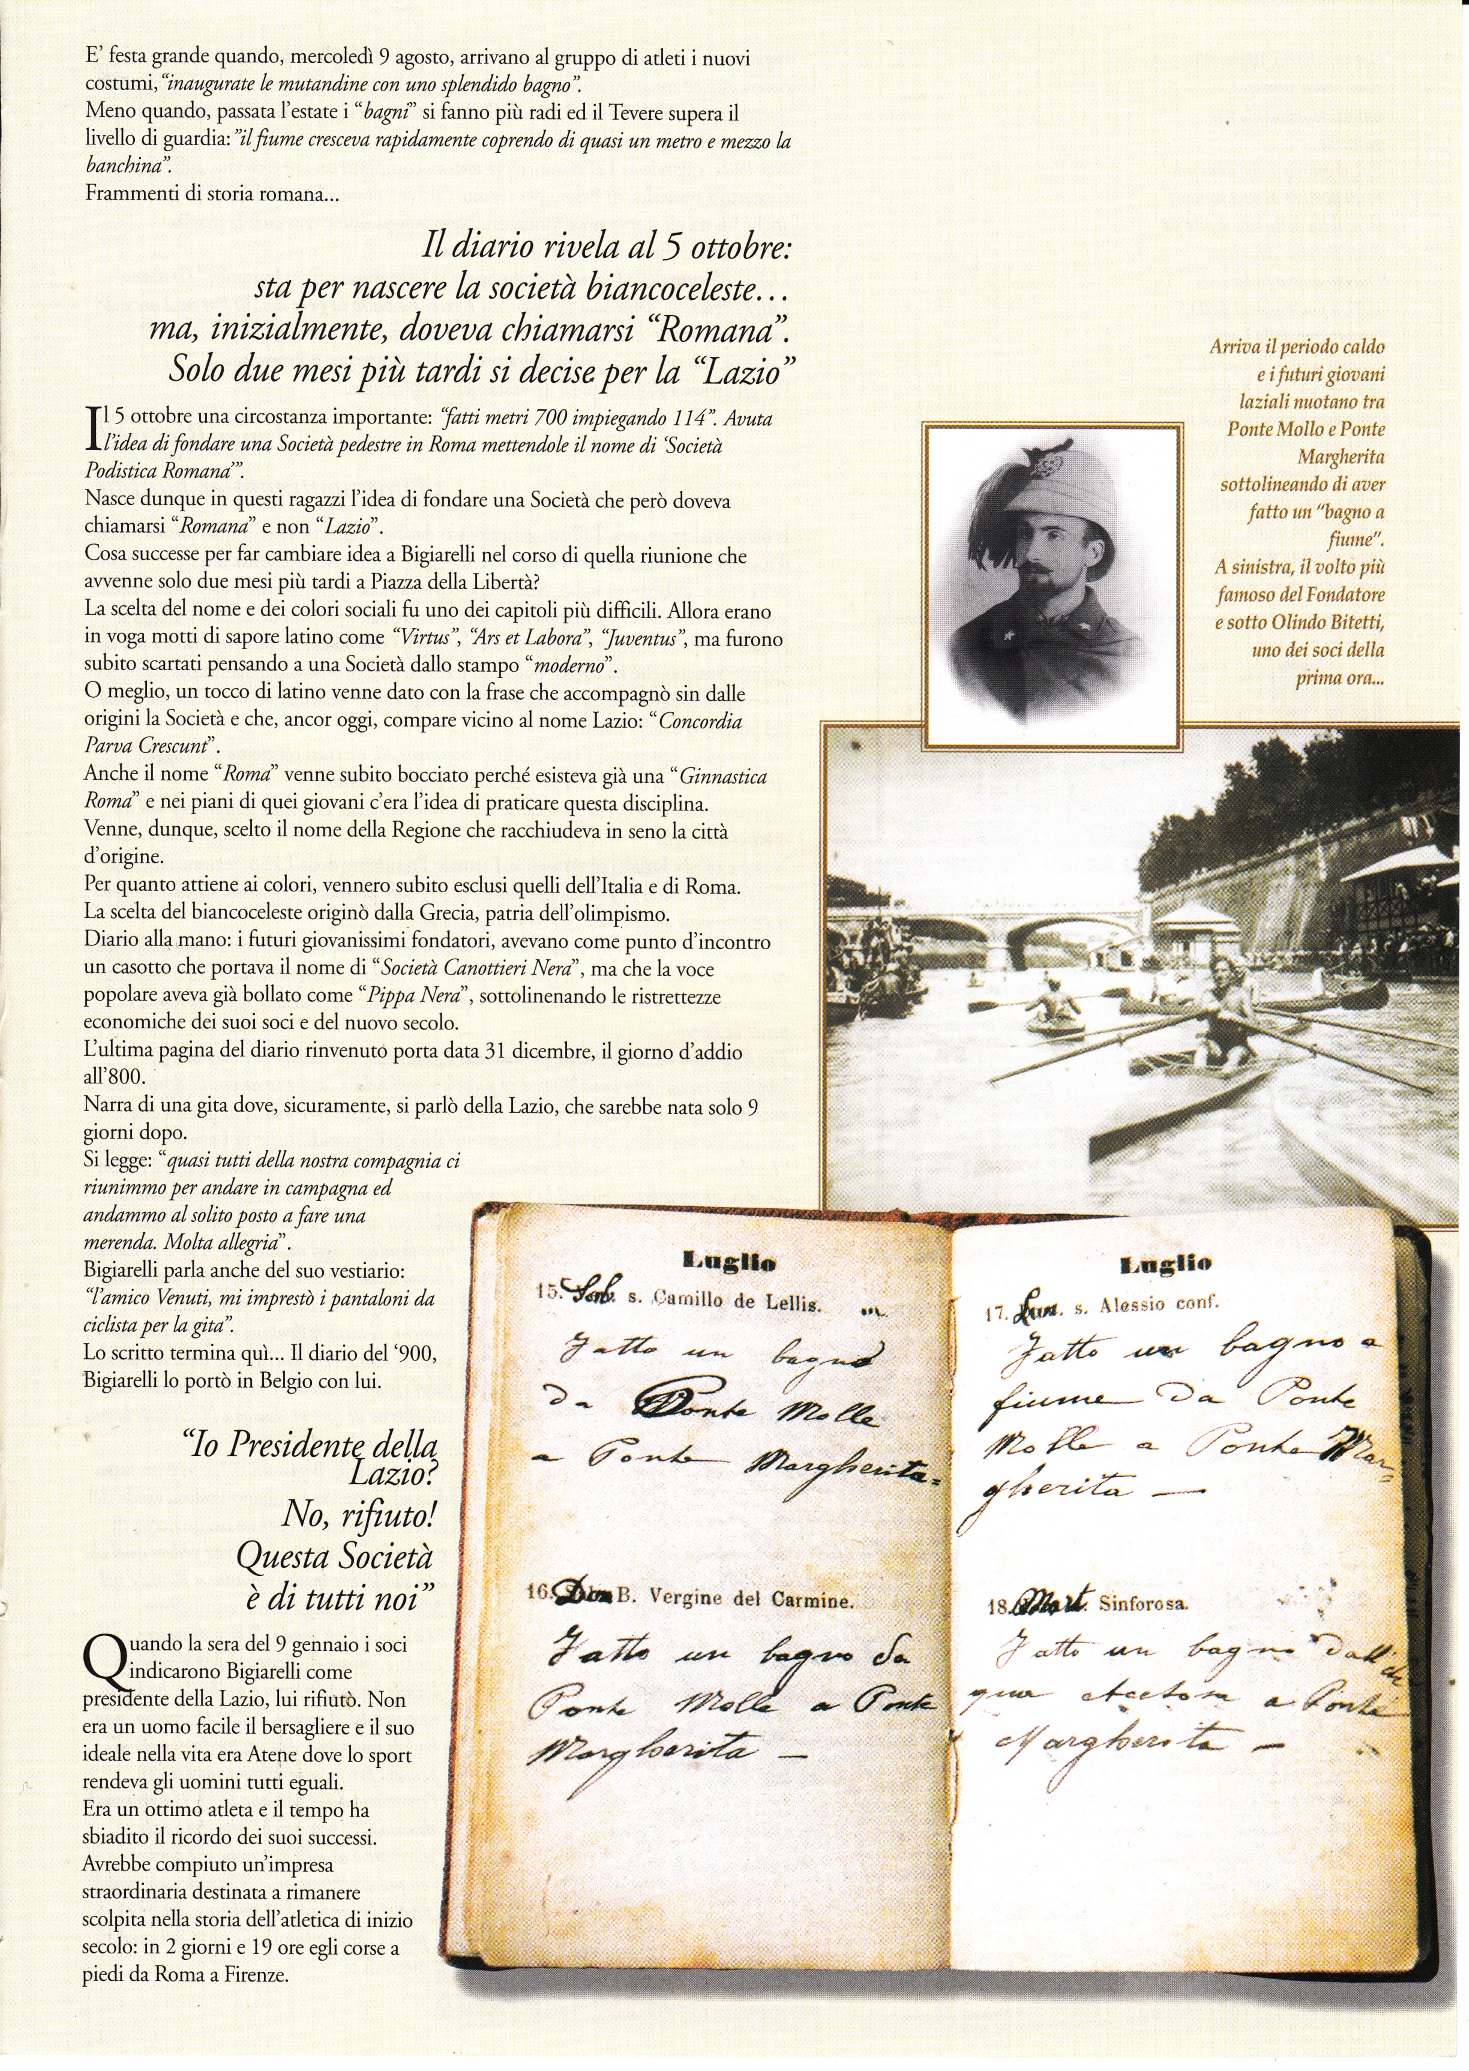 E' festa grande quando, mercoledì 9 agosto, arrivano al gruppo di atleti i nuovi
costumi, "inaugurate le mutandine con uno splendido bagno".
Meno quando, passata l'estate i "bagni" si fanno più radi ed il Tevere supera il
livello di guardia: "il fiume cresceva rapidamente coprendo di quasi un metro e mezzo la
banchina".
Frammenti di storia romana...
Il diario rivela al 5 ottobre:
sta per nascere la società biancoceleste...
ma, inizialmente, doveva chiamarsi "Romana".
Solo due mesi più tardi si decise per la "Lazio"
Il 5 ottobre una circostanza importante: "fatti metri 700 impiegando 114". Avuta
l'idea di fondare una Società pedestre in Roma mettendole il nome di 'Società
Podistica Romana'".
Nasce dunque in questi ragazzi l'idea di fondare una Società che però doveva
chiamarsi "Romana" e non "Lazio".
Cosa successe per far cambiare idea a Bigiarelli nel corso di quella riunione che
avvenne solo due mesi più tardi a Piazza della Libertà?
La scelta del nome e dei colori sociali fu uno dei capitoli più difficili. Allora erano
in voga motti di sapore latino come "Virtus", "Ars et Labora", "Juventus", ma furono
subito scartati pensando a una Società dallo stampo "moderno".
O meglio, un tocco di latino venne dato con la frase che accompagnò sin dalle
origini la Società e che, ancor oggi, compare vicino al nome Lazio: "Concordia
Parva Crescunt".
Anche il nome "Roma" venne subito bocciato perché esisteva già una "Ginnastica
Roma" e nei piani di quei giovani c'era l'idea di praticare questa disciplina.
Venne, dunque, scelto il nome della Regione che racchiudeva in seno la città
d'origine.
Per quanto attiene ai colori, vennero subito esclusi quelli dell'Italia e di Roma.
La scelta del biancoceleste originò dalla Grecia, patria dell'olimpismo.
Diario alla mano: i futuri giovanissimi fondatori, avevano come punto d'incontro
un casotto che portava il nome di "Società Canottieri Nera", ma che la voce
popolare aveva già bollato come "Pippa Nera", sottolinenando le ristrettezze
economiche dei suoi soci e del nuovo secolo.
L'ultima pagina del diario rinvenuto porta data 31 dicembre, il giorno d'addio
all'800.
Narra di una gita dove, sicuramente, si parlò della Lazio, che sarebbe nata solo 9
giorni dopo.
Si legge: "quasi tutti della nostra compagnia ci
riunimmo per andare in campagna ed
andammo al solito posto a fare una
merenda. Molta allegria".
Bigiarelli parla anche del suo vestiario:
"l'amico Venuti, mi imprestò i pantaloni da
ciclista per la gita".
Lo scritto termina quì... Il diario del '900,
Bigiarelli lo portò in Belgio con lui.
"Io Presidente della
Lazio?
No, rifiuto!
Questa Società
è di tutti noi"
Quando la sera del 9 gennaio i soci
indicarono Bigiarelli come
presidente della Lazio, lui rifiutò. Non
era un uomo facile il bersagliere e il suo
ideale nella vita era Atene dove lo sport
rendeva gli uomini tutti eguali.
Era un ottimo atleta e il tempo ha
sbiadito il ricordo dei suoi successi.
Avrebbe compiuto un'impresa
straordinaria destinata a rimanere
scolpita nella storia dell'atletica di inizio
secolo: in 2 giorni e 19 ore egli corse a
piedi da Roma a Firenze.
Arriva il periodo caldo
e i futuri giovani
laziali nuotano tra
Ponte Mollo e Ponte
Margherita
sottolineando di aver
fatto un "bagno a
fiume".
A sinistra, il volto più
famoso del Fondatore
e sotto Olindo Bitetti,
uno dei soci della
prima ora...
Luglio
15. Sab. s. Camillo de Lellis.
Fatto un bagno
da Ponte Molle
a Ponte Margherita=
16. Dom B. Vergine del Carmine.
Fatto un bagno da
Ponte Molle a Ponte
Margherita —
Luglio
17. Lun. s. Alessio conf.
Fatto un bagno a
fiume da Ponte
Molle a Ponte Mar=
gherita —
18. Mart. Sinforosa.
Fatto un bagno dall'
qua Acetosa a Ponte
Margherita —